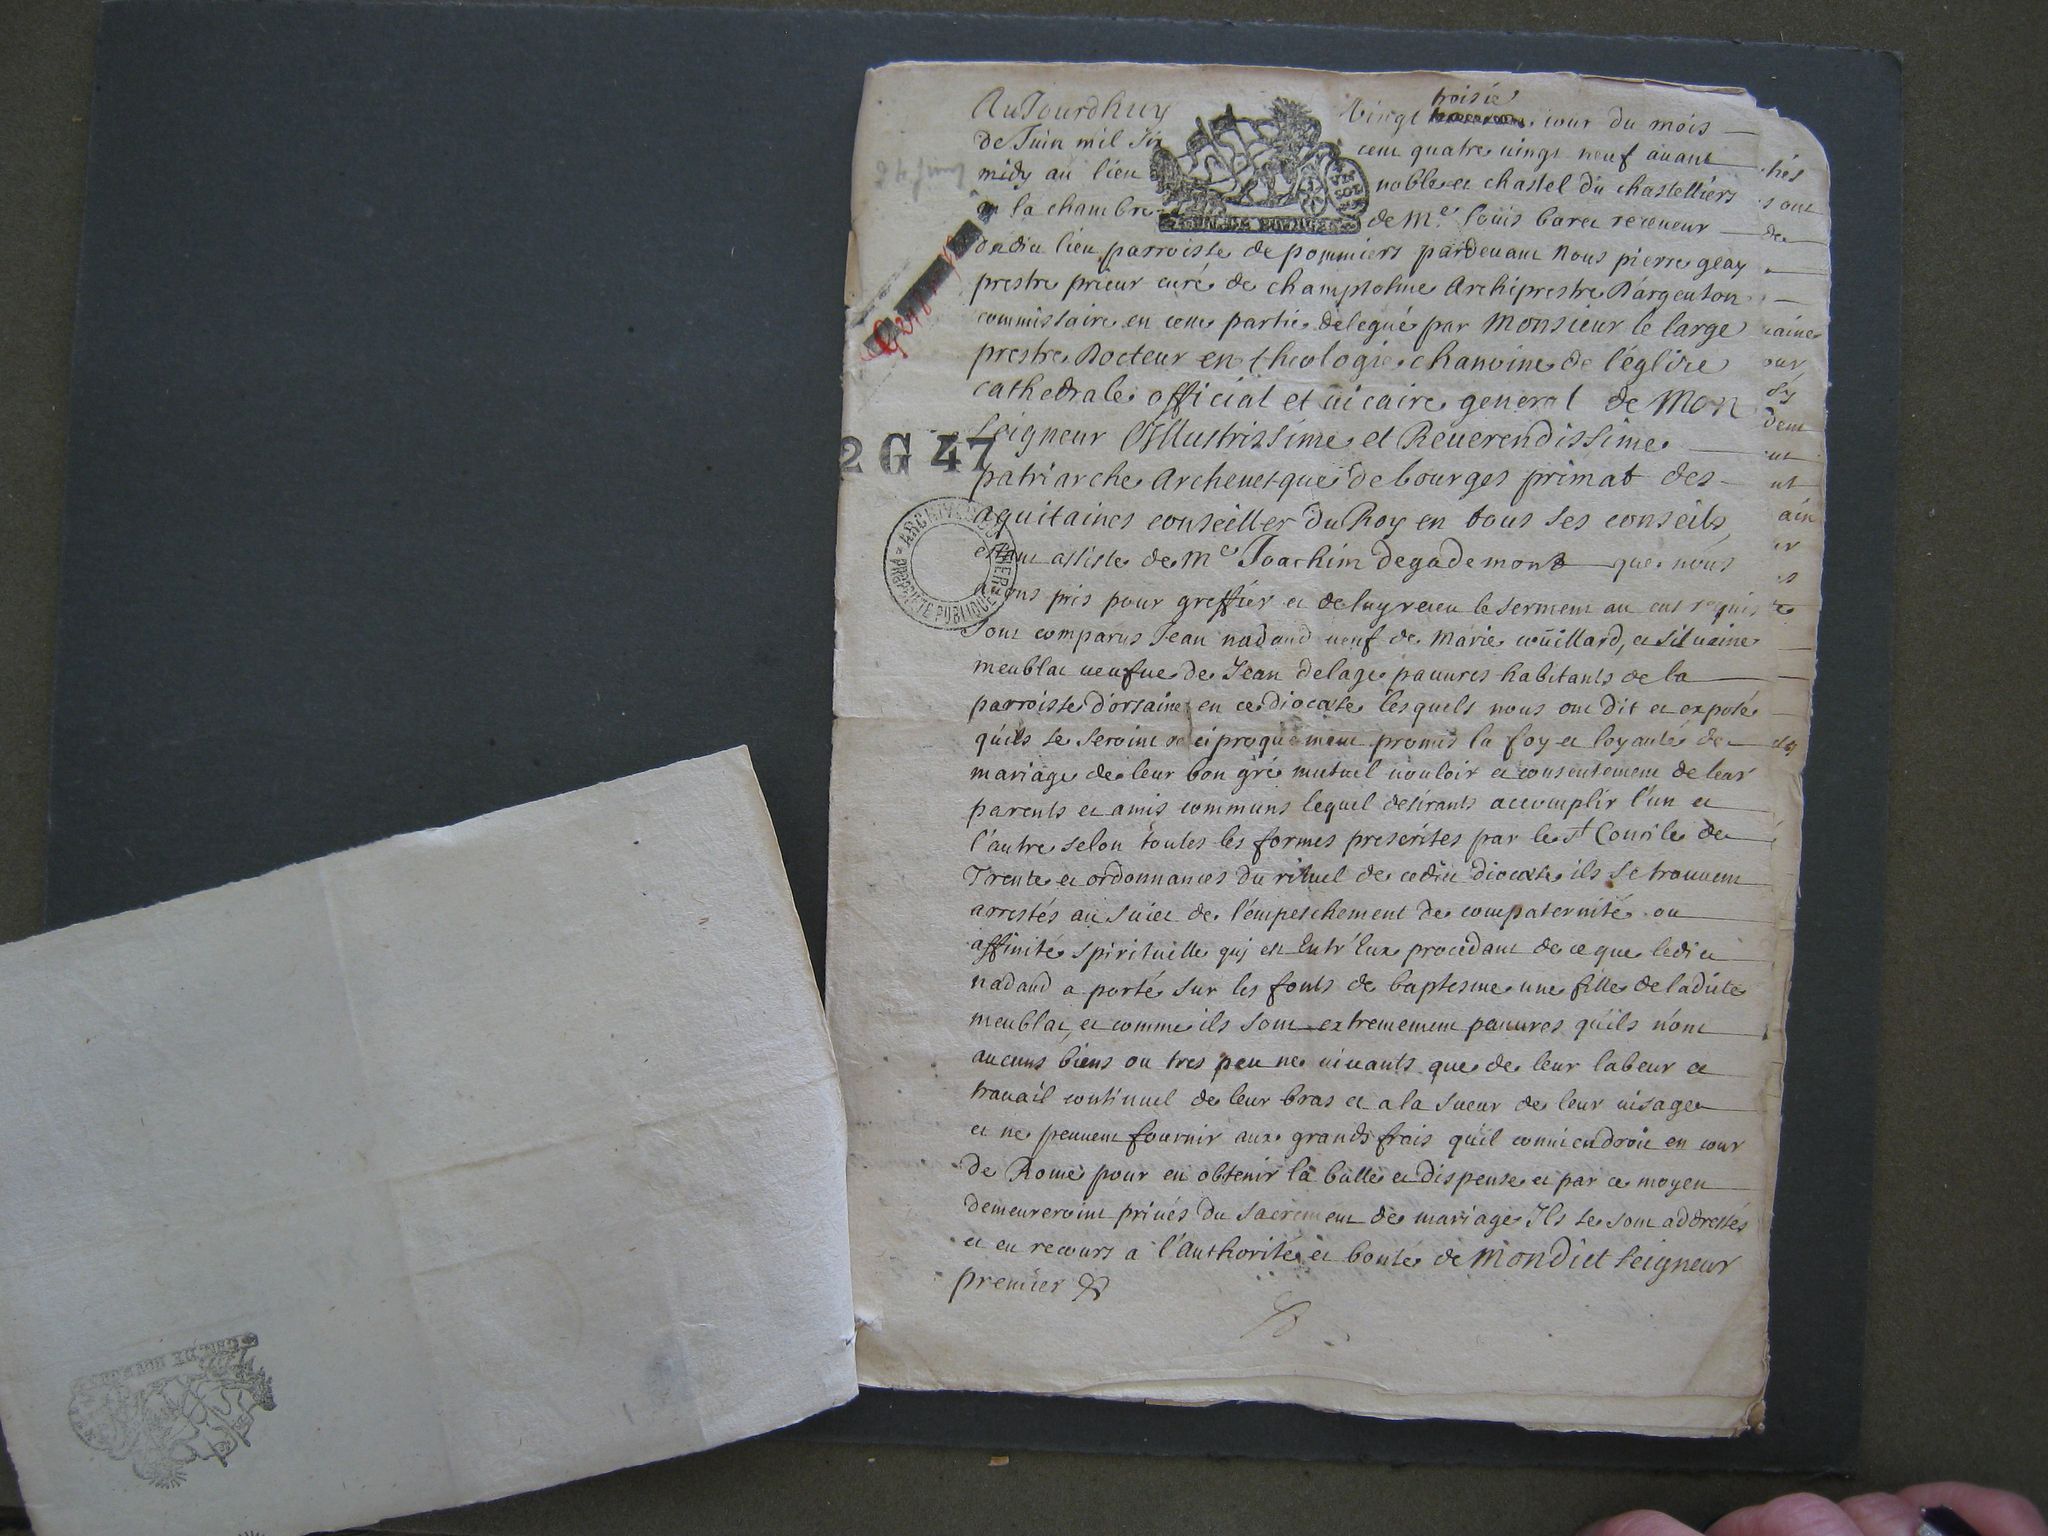 AuJourdhuy vingt troisie jour du mois
de Juin mil six cent quatre vingt neuf auant
midy au lieu noble et chastel du chastelliers
en la chambre de Me. loüis baret receueur
dudit lieu parroisse de pommiers pardeuant nous pierre geay
prestre prieur curé de champtolme Archiprestre d'argenton
commissaire en cette partie delegué par Monsieur le large
prestre Docteur en theologie chanoine de l'églisе
cathedrale official et uicaire general de Mon
seigneur L'Illustrissime et Reuerendissime
2 G 47
patriarche Archeuesque de bourges primat des
aquitaines conseiller du Roy en tous ses conseils
estant assisté de Me Joachim degademont que nous
auons pris pour greffier et de luy receu le serment au cas requis
sont comparus Jean nadaud ueuf de Marie coüillard, et siluaine
meublat ueufue de Jean delage pauures habitants de la
parroisse d'orsaine en ce diocese lesquels nous ont dit et exposé
qu'ils se seroint reciproquement promis la foy et loyauté de
mariage de leur bon gré mutuel uouloir et consentement de leur
parents et amis communs lequel desirants accomplir l'un et
l'autre selon toutes les formes prescrites par le st Concile de
Trente et ordonnances du rituel de cedit diocese ils se trouuent
arrestés au suiet de l'empeschement de compaternité ou
affinité spirituelle quj est Entr'Eux procedant de ce que ledit
nadaud a porté sur les fonts de baptesme une fille de ladite
meublat, et comme ils sont extremement pauures qu'ils n'ont
aucuns biens ou tres peu ne uiuants que de leur labeur et
trauail continuel de leur bras et a la sueur de leur uisage
et ne peuuent fournir aux grands frais qu'il conuiendroit en cour
de Rome pour en obtenir la bulle et dispense et par ce moyen
demeureroint priués du sacrement de mariage Ils se sont addressés
et eu recours a l'Authorité et bonté de Mondict seigneur
premier
ARCHIVES DU CHER
PROPRIETE PUBLIQUE
VN SOL
GNAL DE BOURGES